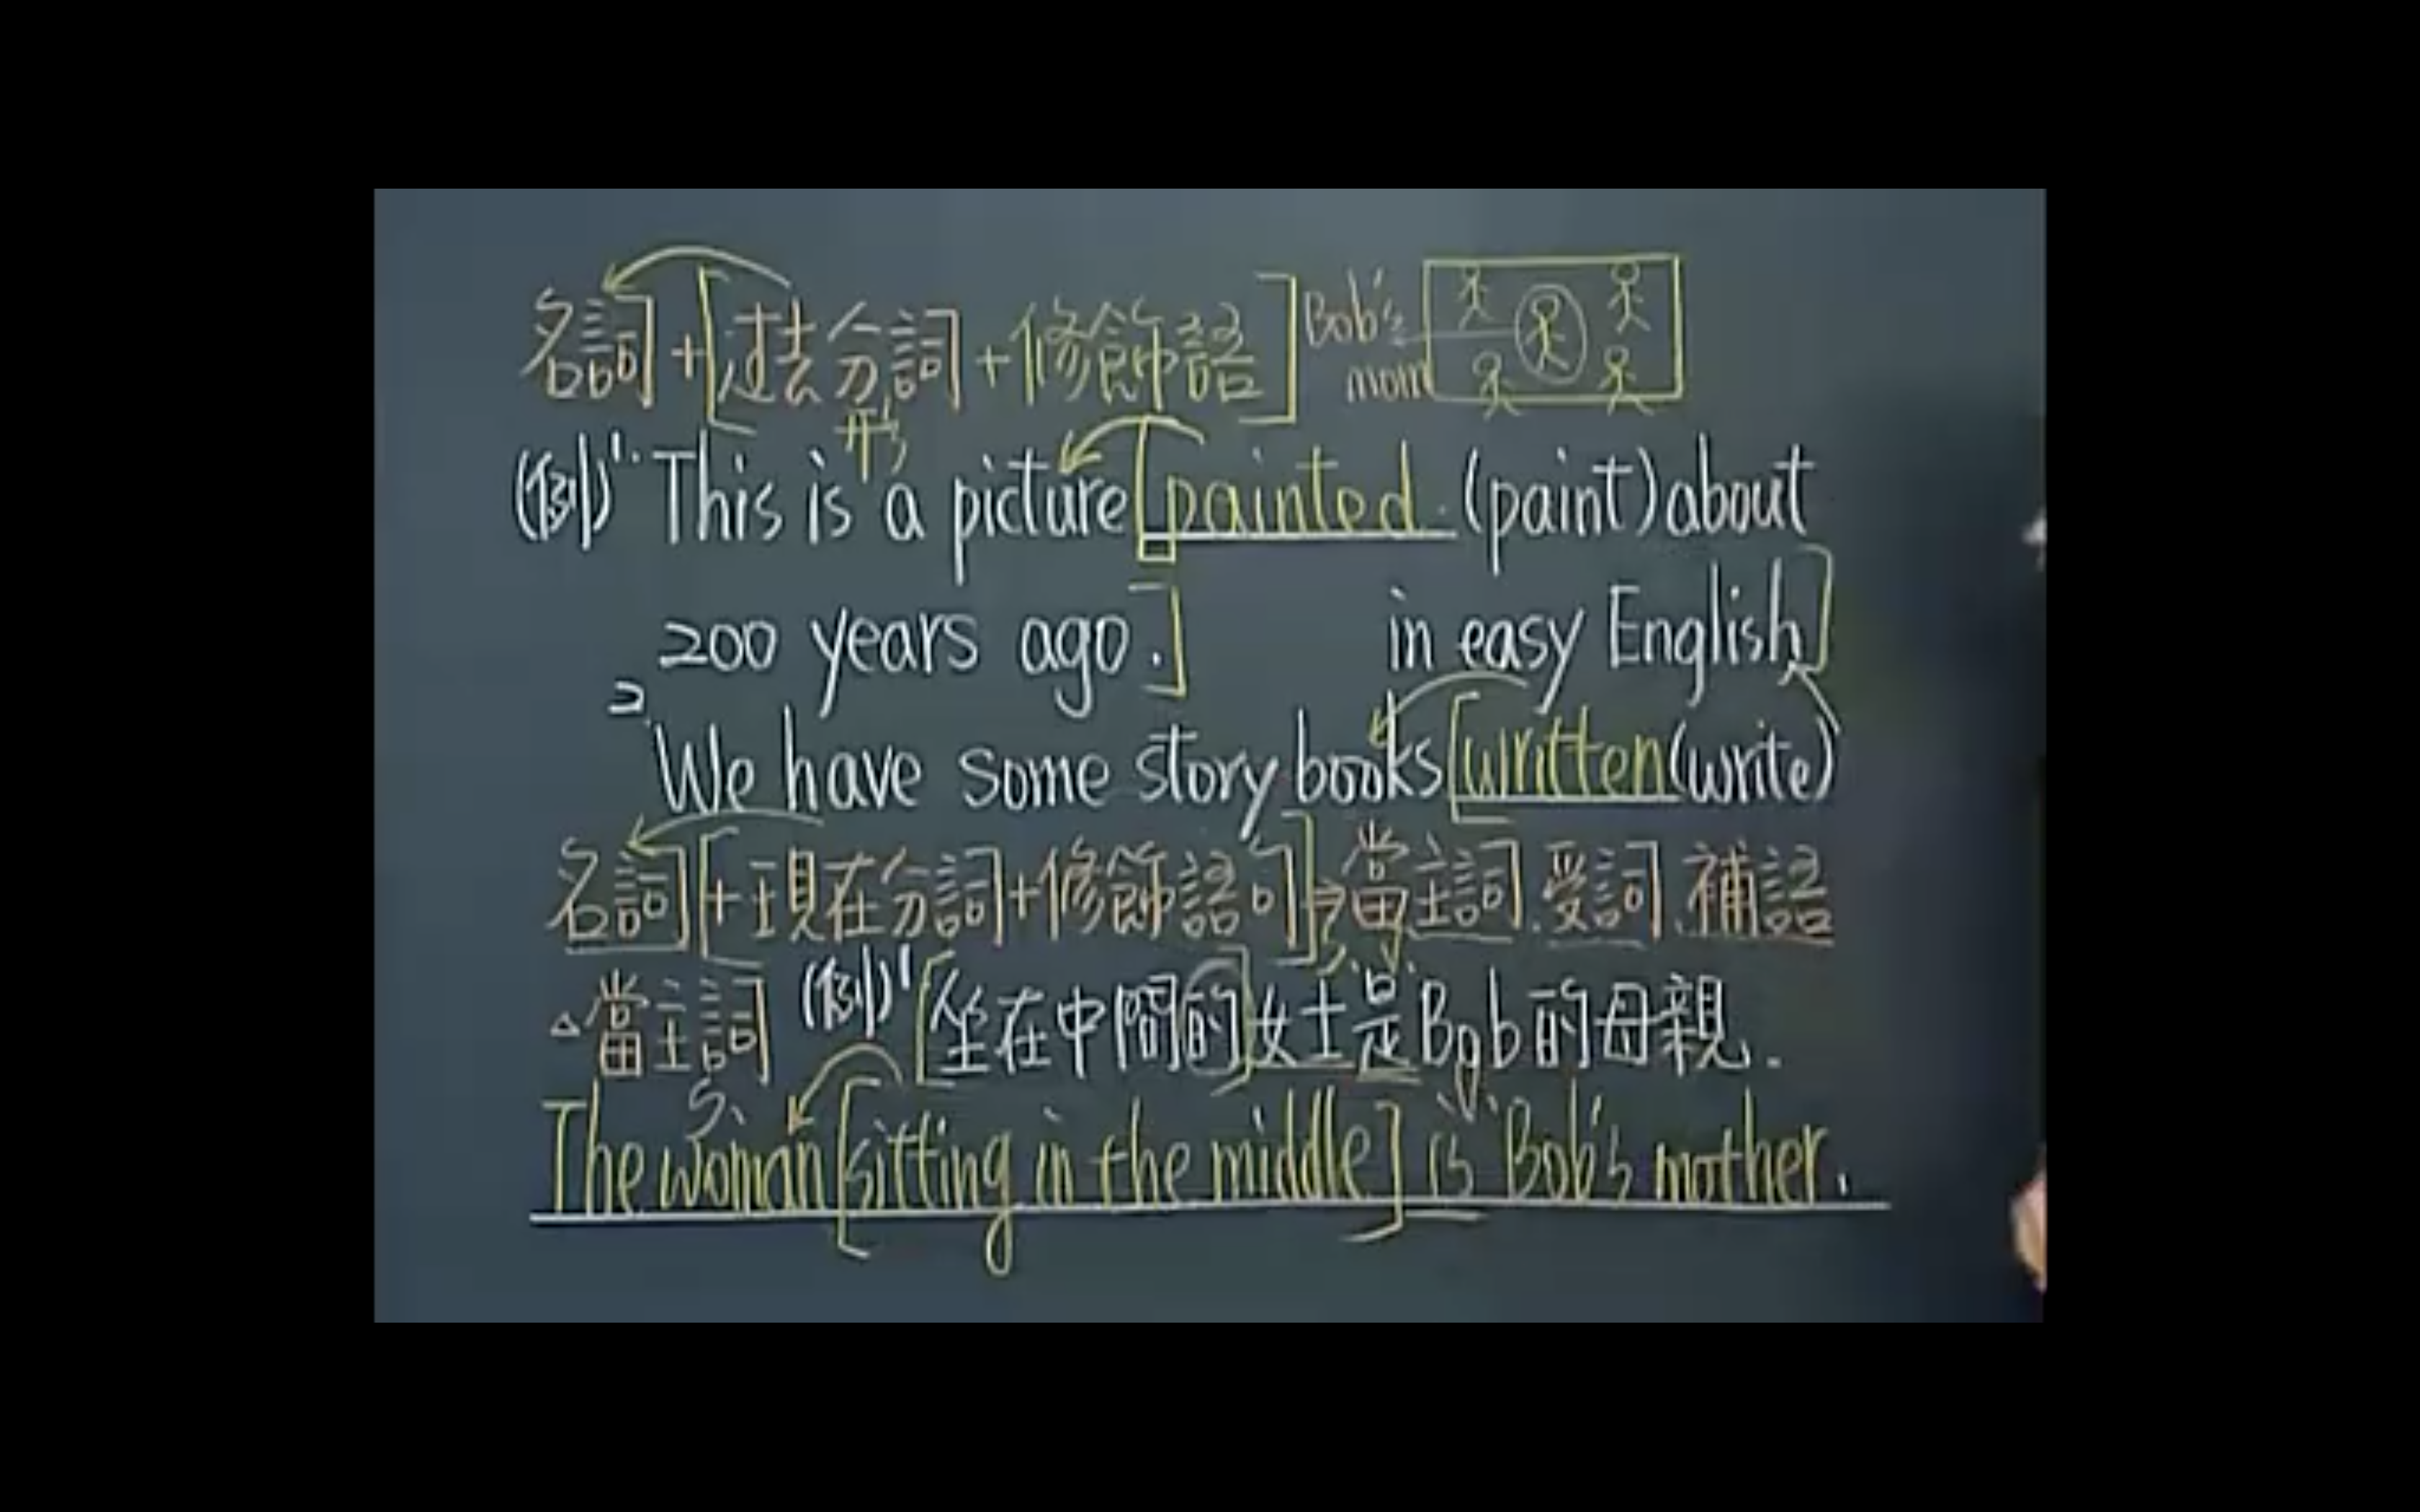 名詞+[過去分詞+修飾語] Bob's mom
形
(例)1. This is a picture [painted (paint) about
200 years ago.]
in easy English]
2. We have some story books [written (write)
名詞[+現在分詞+修飾語句]→當主詞、受詞、補語
△當主詞 (例)1 [坐在中間的]女士是Bob的母親.
S. V.
The woman [sitting in the middle] is Bob's mother.